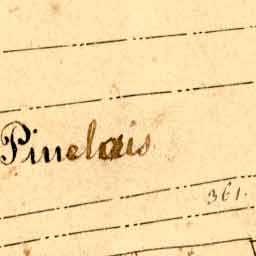 Pinelais
361.